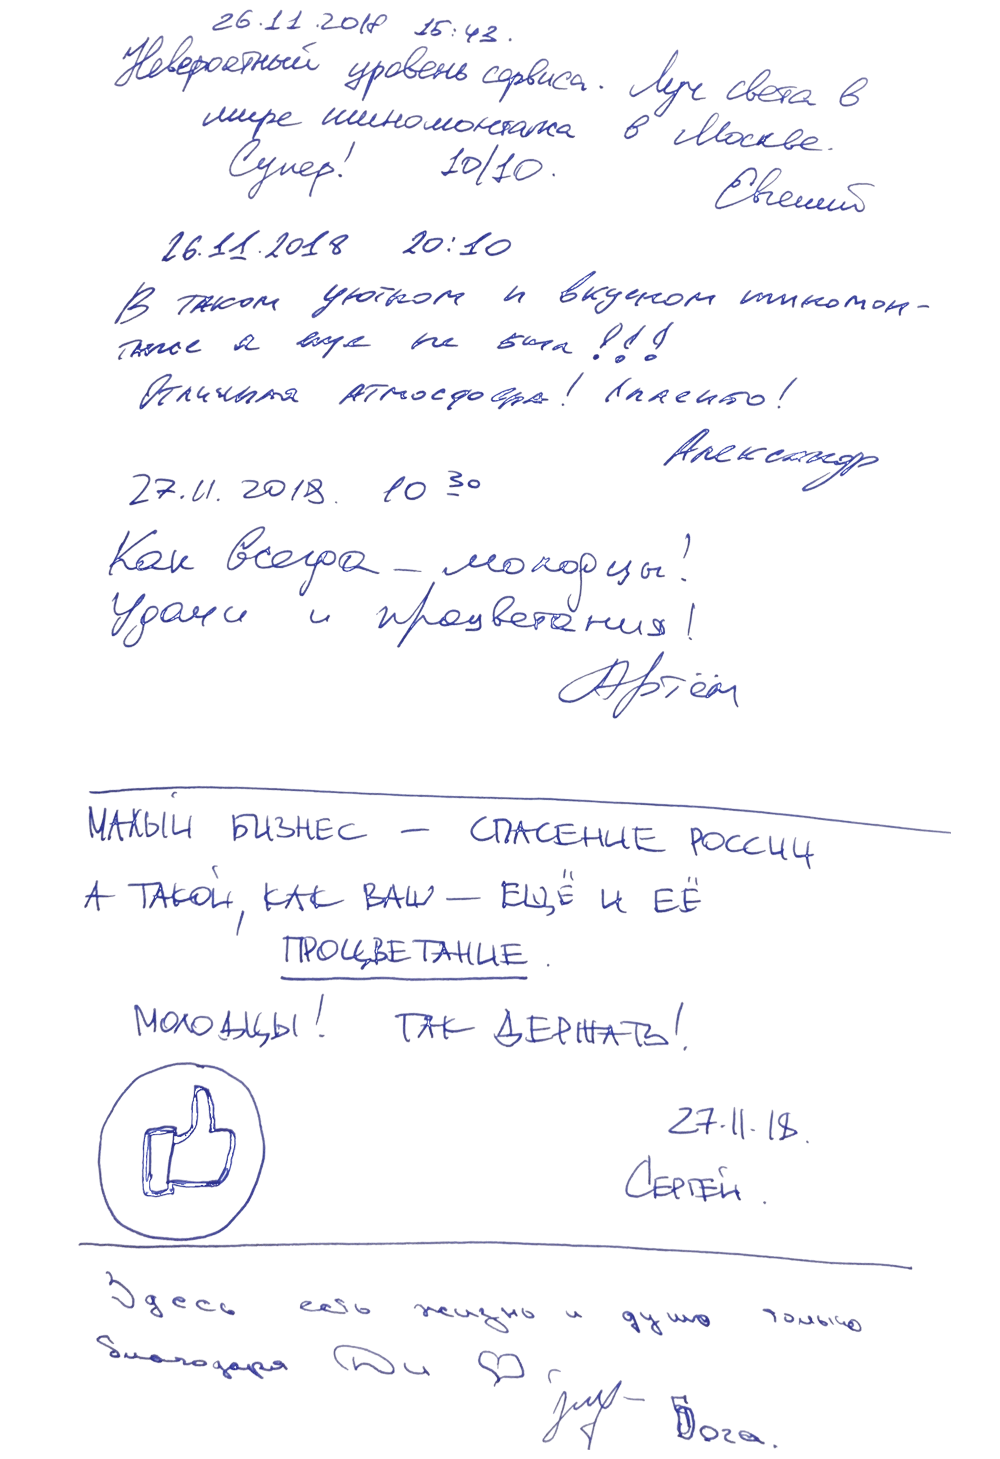 26.11.2018 15:43.
Невероятный уровень сервиса. Луч света в
мире шиномонтажа в Москве.
Супер! 10/10.
Евгений
26.11.2018 20:10
В таком уютном и вкусном шиномон-
таже я еще не был!!!
Отличная атмосфера! Спасибо!
Александр
27.11.2018. 10 30
Как всегда – молодцы!
Удачи и процветания!
Артём
МАЛЫЙ БИЗНЕС – СПАСЕНИЕ РОССИИ
А ТАКОЙ, КАК ВАШ – ЕЩЁ И ЕЁ
ПРОЦВЕТАНИЕ.
МОЛОДЦЫ! ТАК ДЕРЖАТЬ!
27.11.18.
СЕРГЕЙ.
Здесь есть жизнь и душа только
благодаря